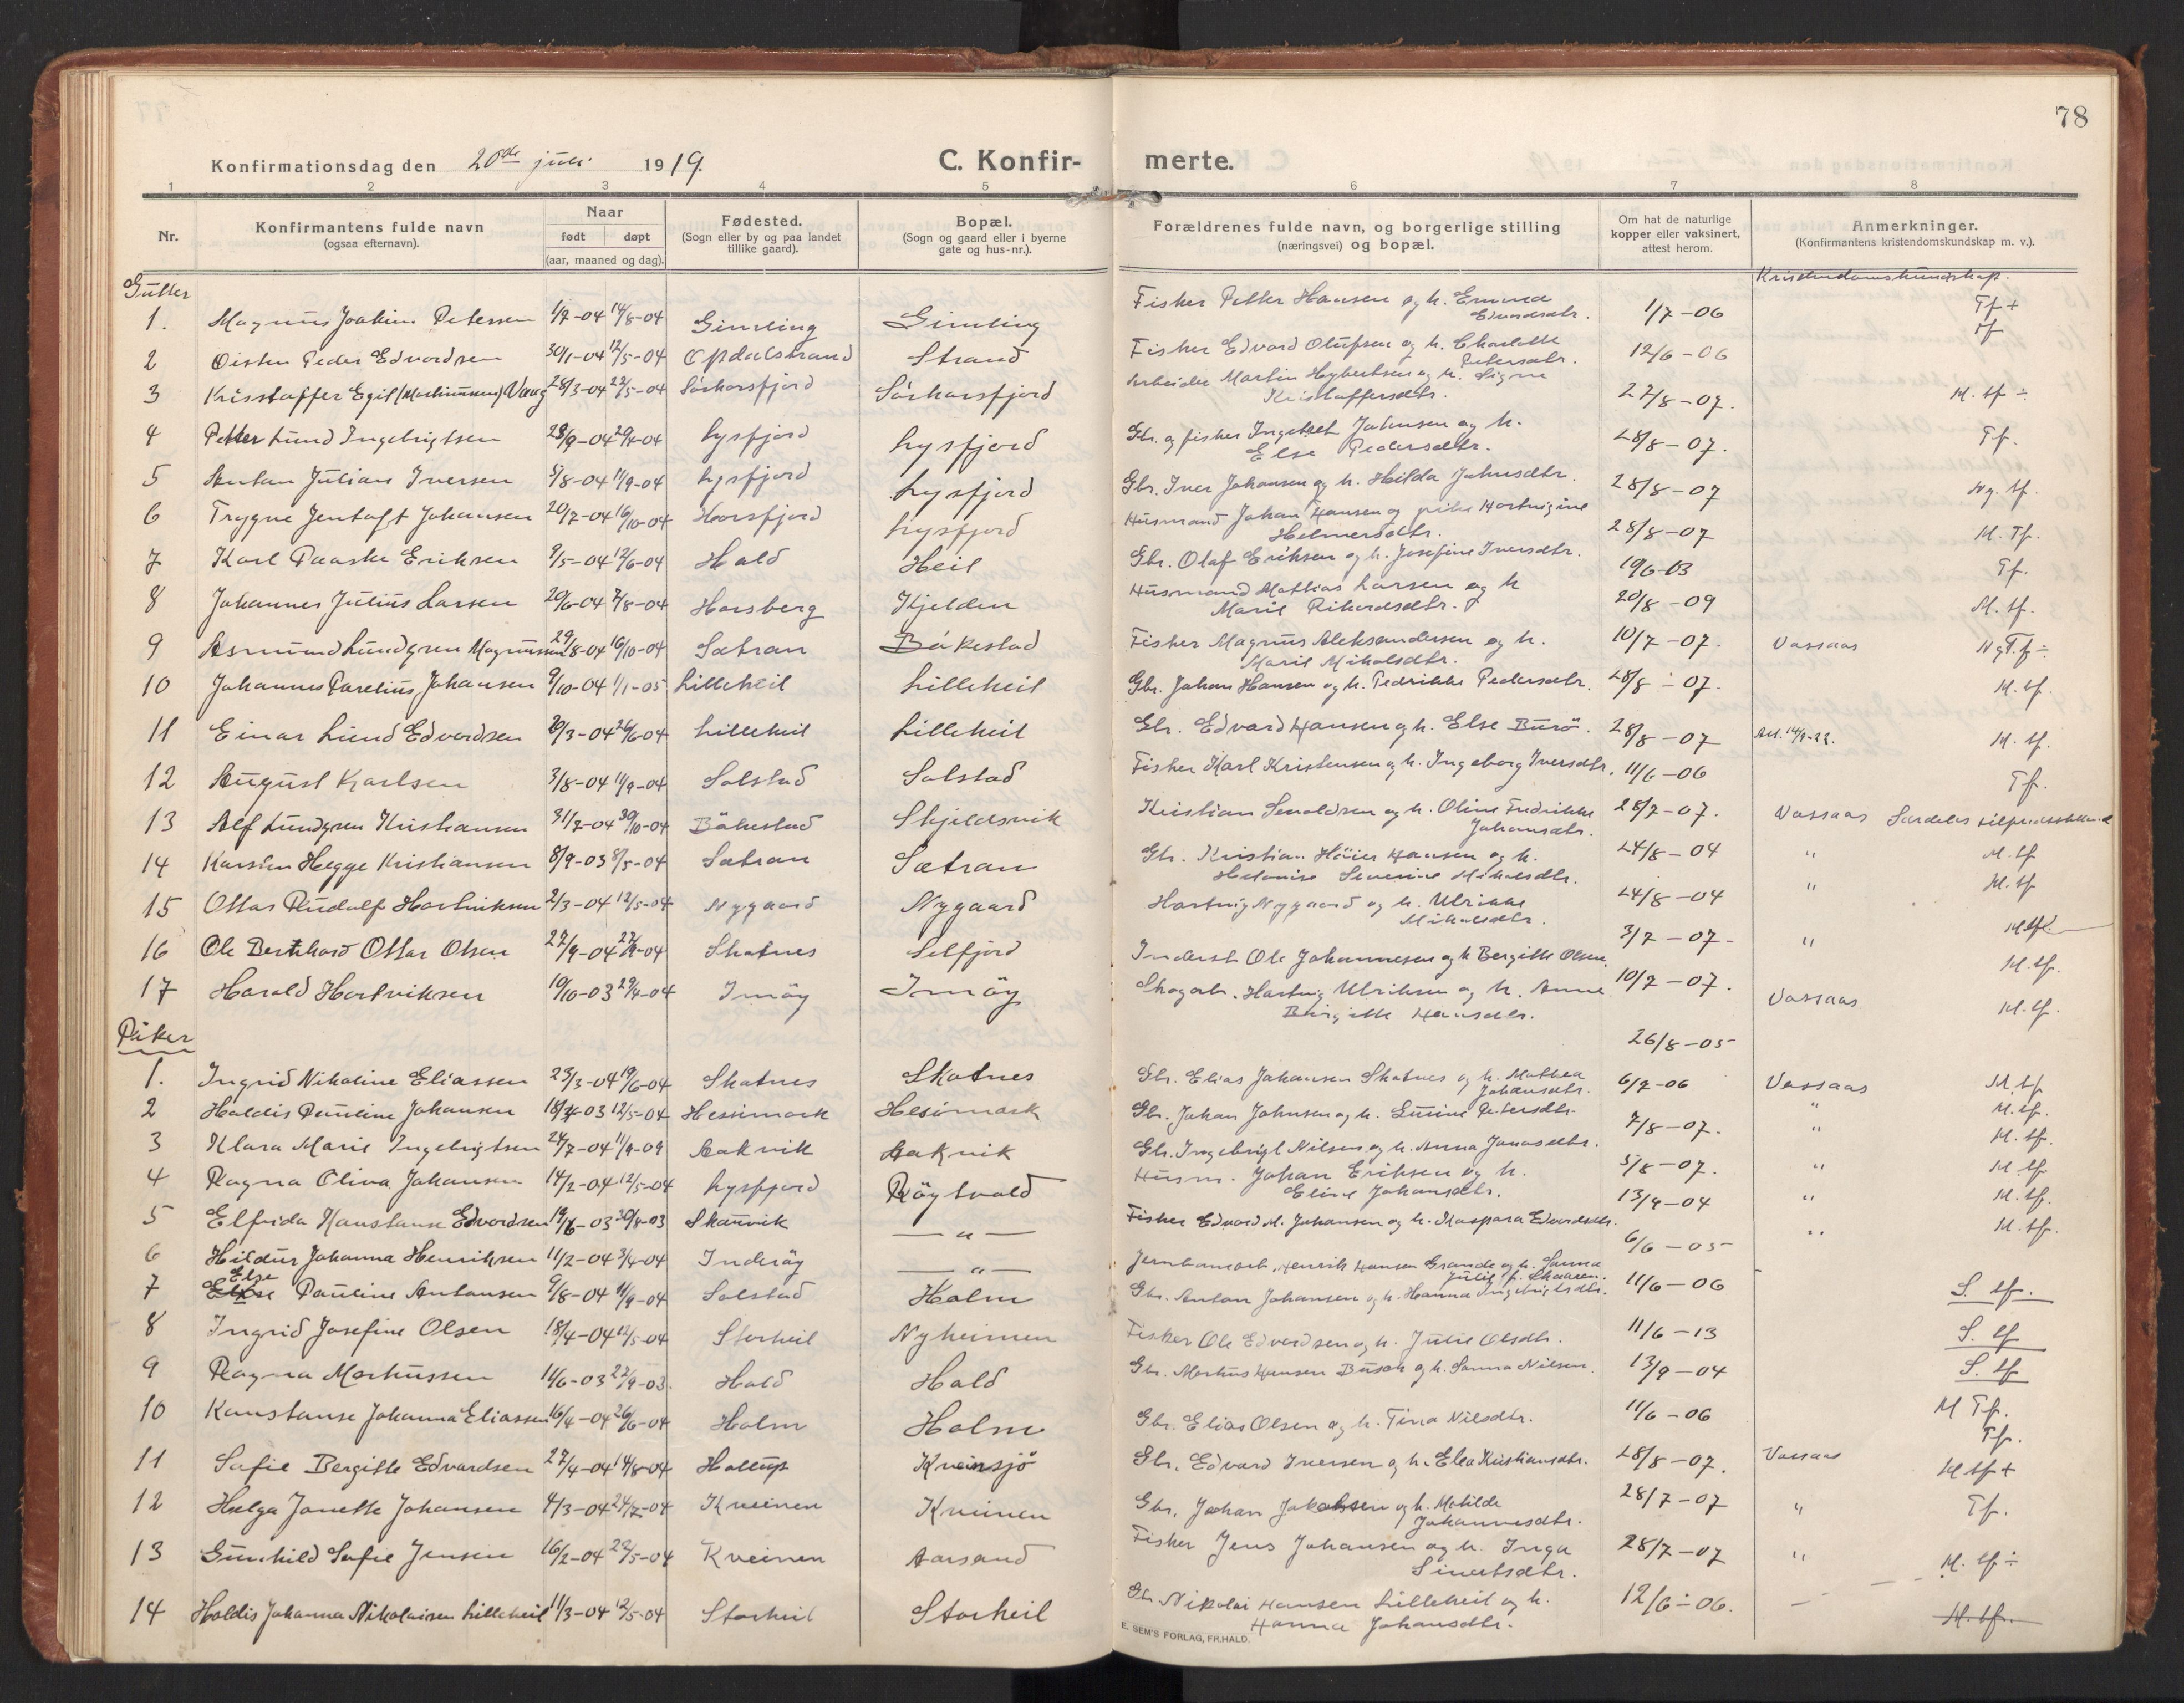 78
Konfirmationsdag den 20de juli 1919.
C. Konfirmerte.
1 2 3 4 5 6 7 8
Nr.
Konfirmantens fulde navn
(ogsaa efternavn).
Naar
født døpt
(aar, maaned og dag).
Fødested.
(Sogn eller by og paa landet
tillike gaard).
Bopæl.
(Sogn og gaard eller i byerne
gate og hus-nr.).
Forældrenes fulde navn, og borgerlige stilling
(næringsvei) og bopæl.
Om hat de naturlige
kopper eller vaksinert,
attest herom.
Anmerkninger.
(Konfirmantens kristendomskundskap m. v.).
Kristendomskundskap.
Gutter
1. Magnus Joakim Petersen 1/7-04 14/8-04 Gimling Gimling Fisker Petter Hansen og h. Emma Edvardsdtr. 1/7-06 Tf+
2 Øisten Peder Edvardsen 30/1-04 12/5-04 Opdalstrand Strand Fisker Edvard Olufsen og h. Charlotte Petersdtr. 12/6-06 tf
3 Kristoffer Egil (Martinussen) Vaag 28/3-04 22/5-04 Sörhorsfjord Sörhorsfjord Arbeider Martin Hybertsen og h. Signe Kristoffersdtr. 27/8-07. M. tf ÷
4 Petter Lund Ingebrigtsen 28/9-04 Lysfjord Lysfjord Gbr. og fisker Johnsen og h. Else Pedersdtr. 28/8-07. Tf.
5 Anton Julian Iversen 5/8-04 11/9-04 Lysfjord Lysfjord Gbr. Iver Johansen og h. Hilda Johnsdtr. 28/8-07 Ng. tf.
6 Trygve Jentoft Johansen 20/7-04 16/10-04 Horsfjord Lysfjord Husmand Johan Hansen og pike Hartvigine Helmersdtr. 28/8-07 M. Tf.
7 Karl Paaske Eriksen 9/5-04 12/6-04 Hald Heil Gbr. Olaf Eriksen og h. Josefine Iversdtr. 19/6-03 Tf.
8 Johannes Julius Larsen 20/6-04 7/8-04 Horsberg Kjelden Husmand Mathias Larsen og h Marie Rikardsdtr. 20/8-09 M. tf.
9 Asmund Lundgren Magnussen 29/8-04 16/10-04 Sætran Bökestad Fisker Magnus Aleksandersen og h. Marie Mikalsdtr. 10/7-07. Vassaas Ng Tf ÷
10 Johannes Parelius Johansen 9/10-04 1/1-05 Lilleheil Lilleheil Gbr. Johan Hansen og h. Pedrikke Pedersdtr. 28/8-07. M. tf.
11 Einar Lund Edvardsen 20/3-04 26/6-04 Lilleheil Lilleheil Gbr. Edvard Hansen og h. Else Burö. 28/8-07 Att. 14/9-22. M. tf.
12 August Karlsen 3/8-04 11/9-04 Solstad Solstad Fisker Karl Kristensen og h. Ingeborg Iversdtr. 11/6-06 Tf.
13 Alf Lundgren Kristiansen 31/7-04 30/10-04 Bökestad Skjeldsvik Kristian Senoldsen og h. Oline Fredrikke Johansdtr. 28/7-07. Vassaas Særdeles tilfredsstillende
14 Karsten Helgge Kristiansen 8/9-03 8/5-04 Sætran Sætran Gbr. Kristian Höier Hansen og h. Helonise Severine Mikalsdtr. 24/8-04 " M. tf
15 Ottar Rudolf Hartviksen 2/3-04 12/5-04 Nygaard Nygaard Hartvig Nygaard og h. Ulrikke Mikalsdtr. 24/8-04 " M. tf
16 Ole Bernhard Ottar Olsen 27/9-04 Skatnes Selfjord Inderst Ole Johannesen og h Bergitte Olsen. 3/7-07- " M. tf.
17 Harald Hartviksen 19/10-03 29/4-04 Imöy Imöy Skogarb. Hartvig Ulriksen og h. Anne Birgitte Hansdtr. 10/7-07. Vassaas M. tf.
26/8-05
Piker
1. Ingrid Nikoline Eliassen 23/3-04 19/6-04 Skatnes Skatnes Gbr. Elias Johansen Skatnes og h. Mathea Johansdtr. 6/7-06 Vassaas M tf
2 Haldis Pauline Johansen 12/5-04 Hessimark Hesimark Gbr. Johan Johnsen og h. Petersdtr. 7/8-07. " M. tf.
3 Klara Marie Ingebrigtsen 24/7-04 11/9-09 Aakvik Aakvik Gbr. Ingebrigt Nilsen og h. Anna Jonasdtr. 5/8-07. " M. tf.
4 Ragna Oliva Johansen 14/2-04 12/5-04 Lysfjord Röytvold Husm. Johan Eriksen og h. Eline Johansdtr. 13/9-04 " M. tf
5 Elfrida Konstanse Edvardsen 30/8-03 Skauvik — " — Fisker Edvard M. Johansen og h. Kaspara Edvardsdtr. 6/6-05 " M. tf.
6 Hildur Johanna Henriksen 11/2-04 3/4-04 Inderöy — " — Jernbanearb. Henrik Hansen Grande og h. Sanna Julie f. Skaaren. 11/6-06 M. tf.
7 Else Pauline Antonsen 9/8-04 11/9-04 Solstad Holm Gbr. Anton Johansen og h. Hanna Ingebrigtsdtr. S. tf.
8 Ingrid Josefine Olsen 18/4-04 12/5-04 Storheil Nyheimen Fisker Ole Edvardsen og h. Julie Olsdtr. 11/6-13 S. tf
9 Ragna Markussen 11/6-03 27/9-03. Hald Hald Gbr. Markus Hansen Busch og h. Sanna Nilsen. 13/9-04 S. tf
10 Konstanse Johanna Eliassen 16/4-04 26/6-04 Holm Holm Gbr. Elias Olsen og h. Tina Nilsdtr. 11/6-06 M Tf.
Tf.
11 Sofie Bergitte Edvardsen 27/4-04 14/8-04 Hollup Kveinsjö Gbr. Edvard Iversen og h. Elea Kristiansdtr. 28/8-07. Vassaas M tf +
12 Helga Janette Johansen 4/3-04 24/7-04 Kveinen Kveinen Gbr. Johan Jakobsen og h. Matilde Johannesdtr. 28/7-07 " Tf.
13 Gunhild Sofie Jensen 16/2-04 22/5-04 Kveinen Aarsand Fisker Jens Johansen og h. Inga Sivertsdtr. 28/7-07 " M. tf ÷
14 Haldis Johanna Nikolaisen Lilleheil 11/3-04 12/5-04 Storheil Storheil Gbr. Nikolai Hansen Lilleheil og h. Hanna Johansdtr. 12/6-06. — M. tf.
E. SEM'S FORLAG, FR.HALD.